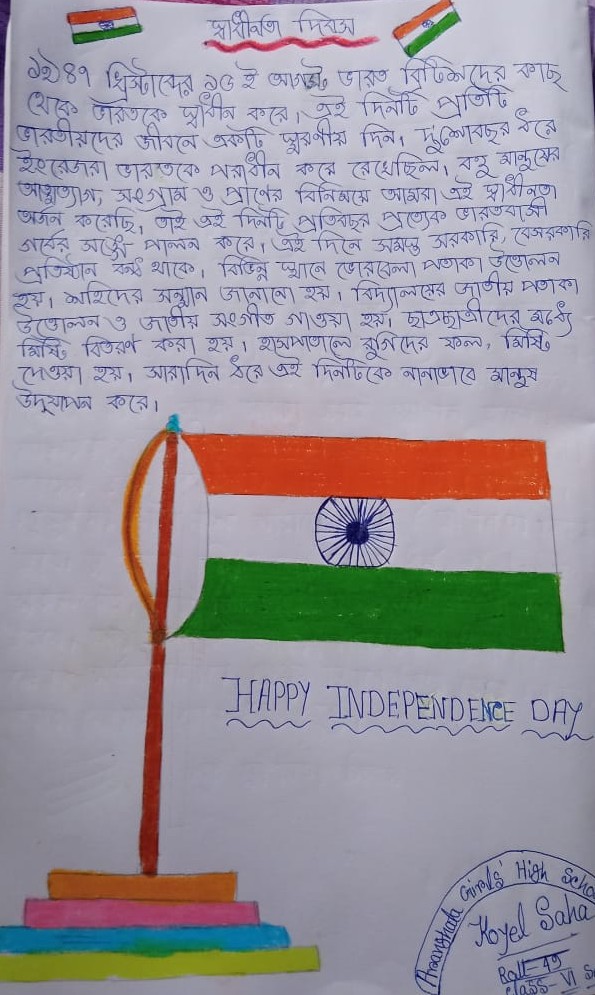 স্বাধীনতা দিবস
১৯৪৭ খ্রিস্টাব্দের ১৫ ই আগস্ট ভারত ব্রিটিশদের কাছ
থেকে ভারতকে স্বাধীন করে। এই দিনটি প্রতিটি
ভারতীয়দের জীবনে একটি স্মরণীয় দিন। দুশোবছর ধরে
ইংরেজরা ভারতকে পরাধীন করে রেখেছিল। বহু মানুষের
আত্মত্যাগ, সংগ্রাম ও প্রাণের বিনিময়ে আমরা এই স্বাধীনতা
অর্জন করেছি, তাই এই দিনটি প্রতিবছর প্রত্যেক ভারতবাসী
গর্বের সঙ্গে পালন করে। এই দিনে সমস্ত সরকারি, বেসরকারি
প্রতিষ্ঠান বন্ধ থাকে। বিভিন্ন স্থানে ভোরবেলা পতাকা উত্তোলন
হয়। শহিদের সম্মান জানানো হয়। বিদ্যালয়ের জাতীয় পতাকা
উত্তোলন ও জাতীয় সংগীত গাওয়া হয়, ছাত্রছাত্রীদের মধ্যে
মিষ্টি বিতরণ করা হয়। হাসপাতালে রুগিদের ফল, মিষ্টি
দেওয়া হয়। সারাদিন ধরে এই দিনটিকে নানাভাবে মানুষ
উদ্‌যাপন করে।
HAPPY INDEPENDENCE DAY
Girls' High
Koyel Saha
Roll-49
Class-VI